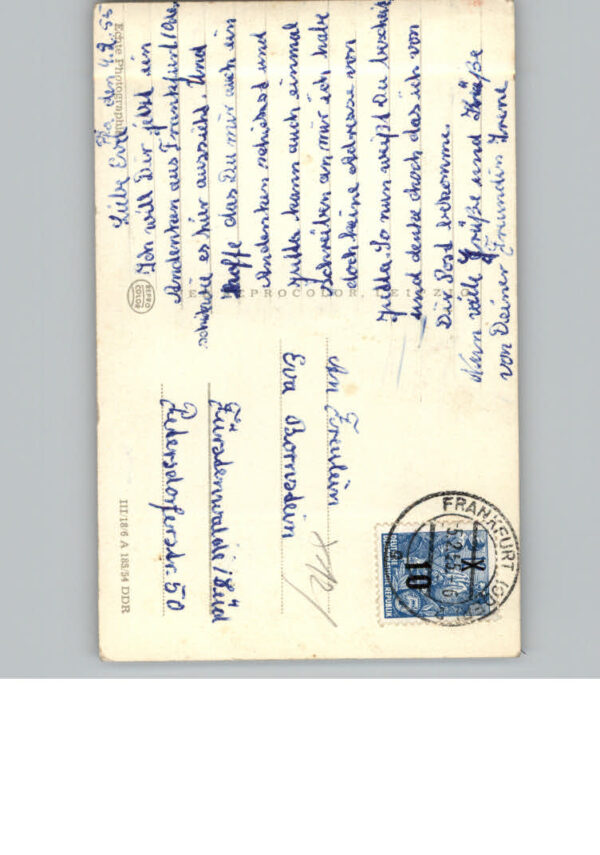 Ffo. den 4.2.55
Liebe Eva!
Ich will Dir jetzt ein
Andenken aus Frankfurt/Oder
schik wie es hier aussieht. Und
hoffe das Du mir auch ein
Andenken schickst und
Jutta kann auch einmal
schreiben an mir ich habe
doch keine Adresse von
Jutta. So nun weißt Du bescheid
und denke doch das ich von
Dir Post bekomme.
Nun viele Grüße und Küße
von Deiner Freundin Irene
Echte Photographie
REPRO
COLOR
REPROCOLOR
III/18/6 A 185/54 DDR
An Fräulein
Eva Bornstein
Fürstenwalde/Süd
Petersdorferstr. 50
FRANKFURT (ODER)
DEUTSCHE
DEMOKRATISCHE REPUBLIK
10